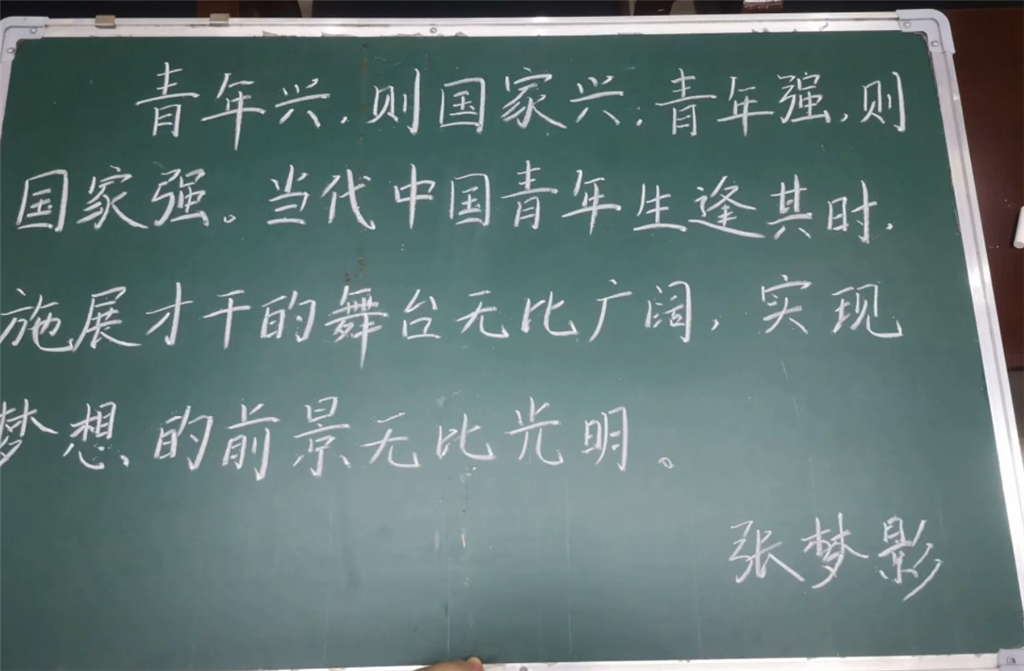 青年兴，则国家兴；青年强，则
国家强。当代中国青年生逢其时，
施展才干的舞台无比广阔，实现
梦想的前景无比光明。
张梦影